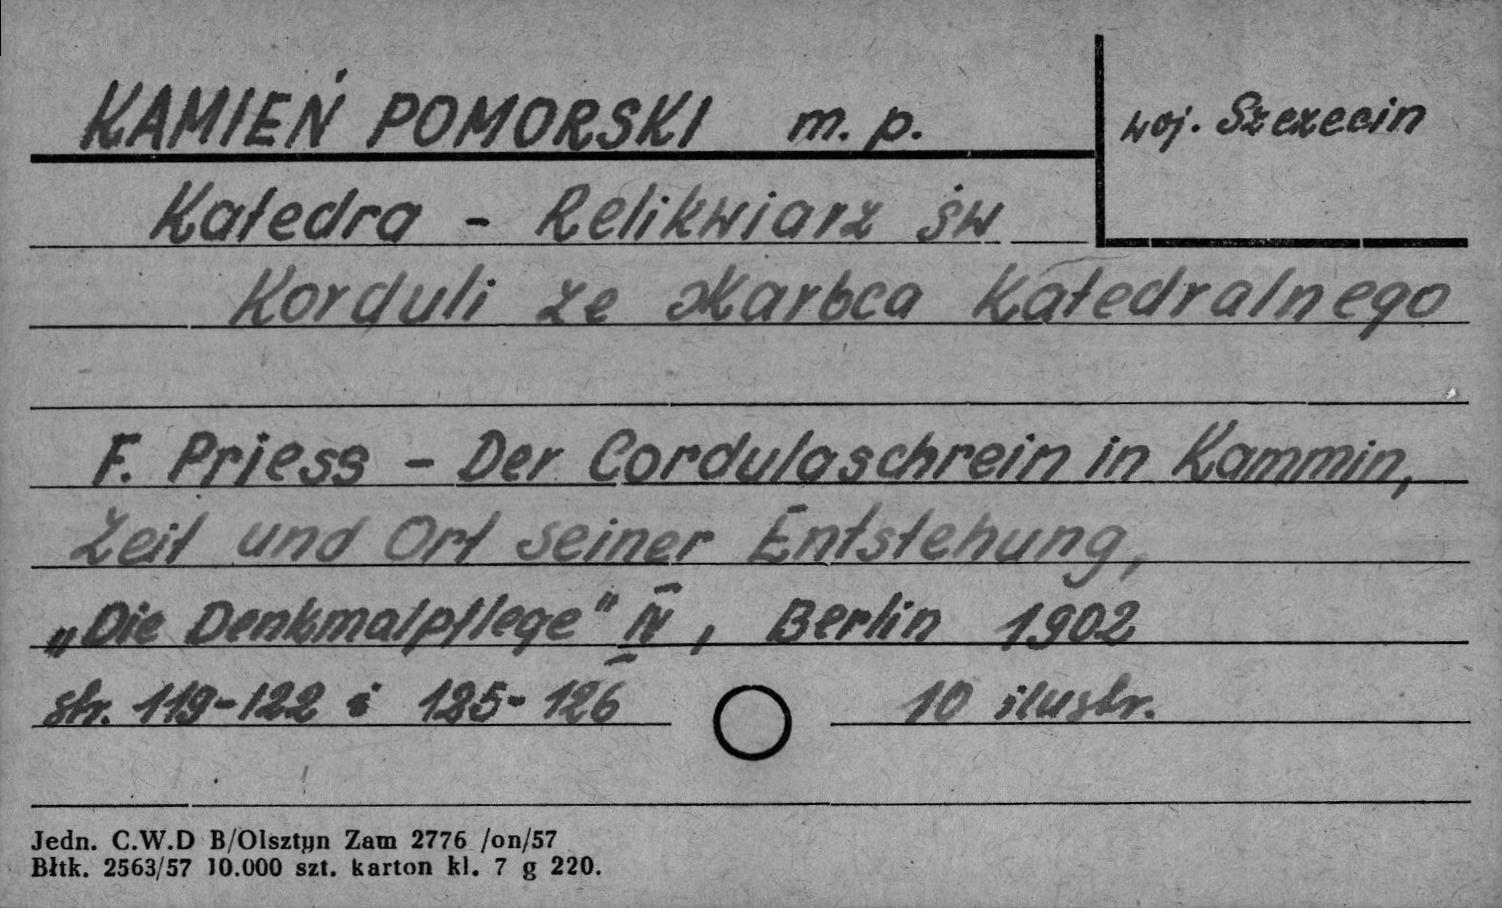 KAMIEŃ POMORSKI m. p.
woj. Szczecin
Katedra - Relikwiarz św
Korduli ze skarbca Katedralnego
F. Priess - Der Cordulaschrein in Kammin,
Zeit und Ort seiner Entstehung,
„Die Denkmalpflege" IV, Berlin 1902
str. 119-122 i 125-126 10 ilustr.
Jedn. C.W.D B/Olsztyn Zam 2776 /on/57
Błtk. 2563/57 10.000 szt. karton kl. 7 g 220.